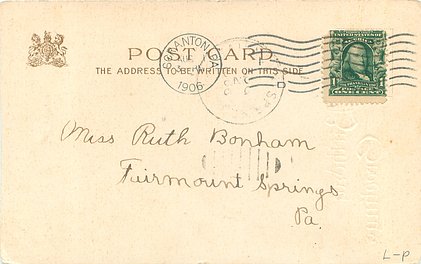 POST CARD.
THE ADDRESS TO BE WRITTEN ON THIS SIDE
SCRANTON, PA.
1906
ONE CENT
Miss Ruth Bonham
Fairmount Springs
Pa.
L-P